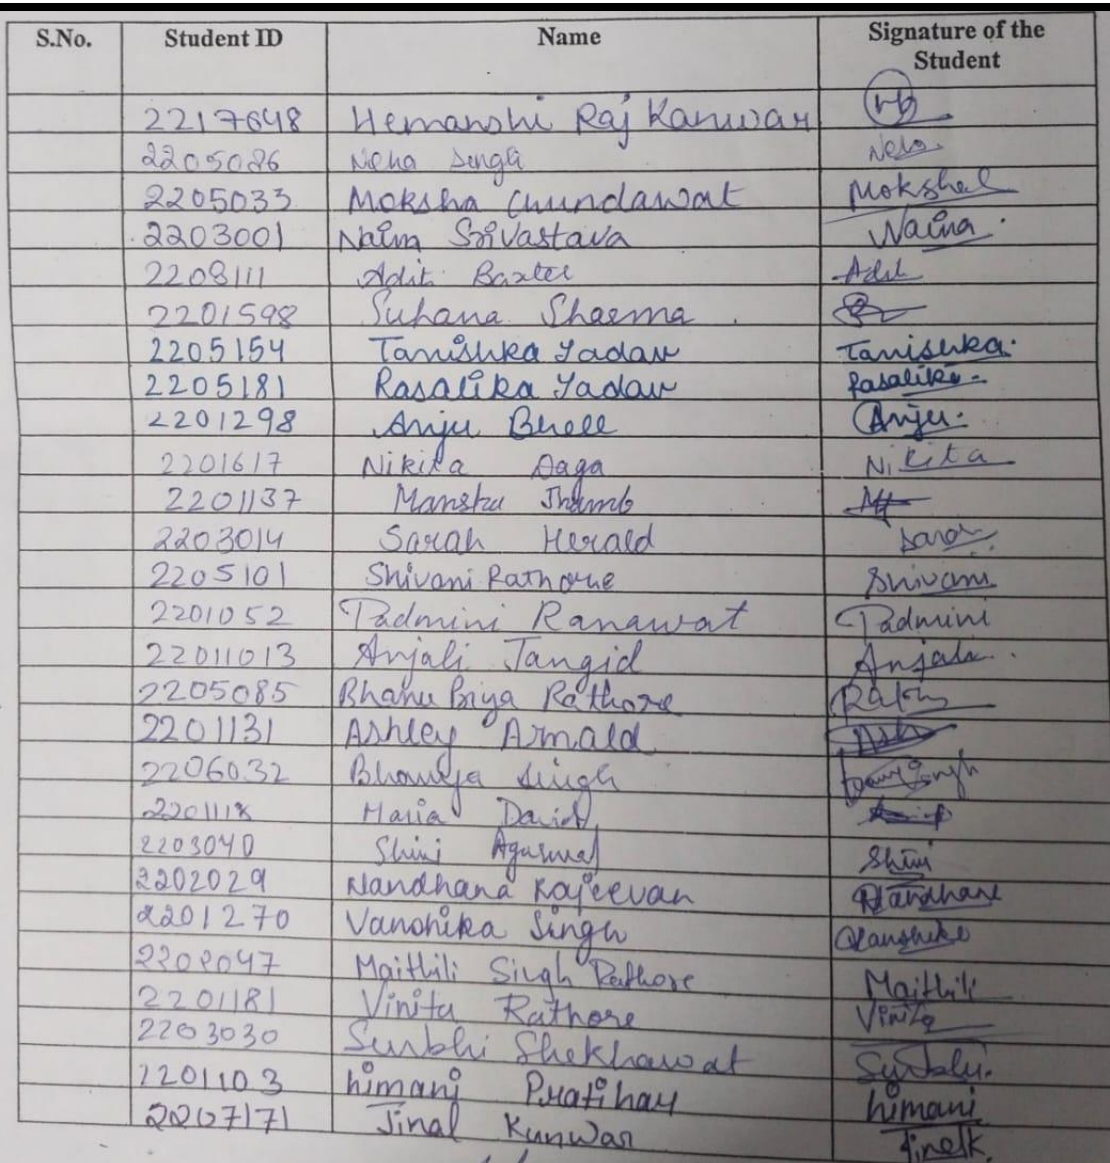 S.No. Student ID Name Signature of the Student
2217648 Hemanshi Raj Kanwar
2205086 Neha Singh Neha
2205033 Moksha Chundawat Moksha
2203001 Naina Srivastava Naina
2208111 Aditi Baxter Aditi
2201598 Suhana Sharma
2205154 Tanishka Yadav Tanishka
2205181 Rasalika Yadav Rasalika
2201298 Anju Bhell Anju
2201617 Nikita Daga Nikita
2201137 Manska Thamb
2203014 Sarah Herald Sarah
2205101 Shivani Rathore Shivani
2201052 Padmini Ranawat Padmini
22011013 Anjali Jangid Anjali
2205085 Bhanu Priya Rathore
2201131 Ashley Arnald Ash
2206032 Bhavya Singh
2201118 Maria David
2203040 Shini Agarwal Shini
2202029 Nandhana Rajeevan Nandhana
2201270 Vanshika Singh Vanshika
2202047 Maithili Singh Rathore Maithili
2201181 Vinita Rathore Vinita
2203030 Surbhi Shekhawat Surbhi
2201103 himani Pratihar himani
2207171 Jinal Kunwar Jinalk